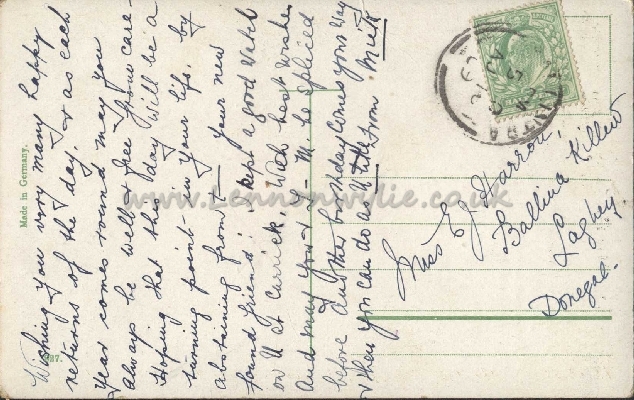 Wishing you very many happy
returns of the day, & as each
Year comes round may you
always be well & free from care –
Hoping that this day will be a
turning point in your life, by
abstaining from — your new
found friend! I kept a good watch
on U at Carrick. With best wishes
And may you & – M. be spliced
before another birthday comes your way
& then you can do as U
from
Miss E. J. Harron,
Ballina Killew
Laghey
Donegal.
Made in Germany.
www.Lennonwylie.co.uk